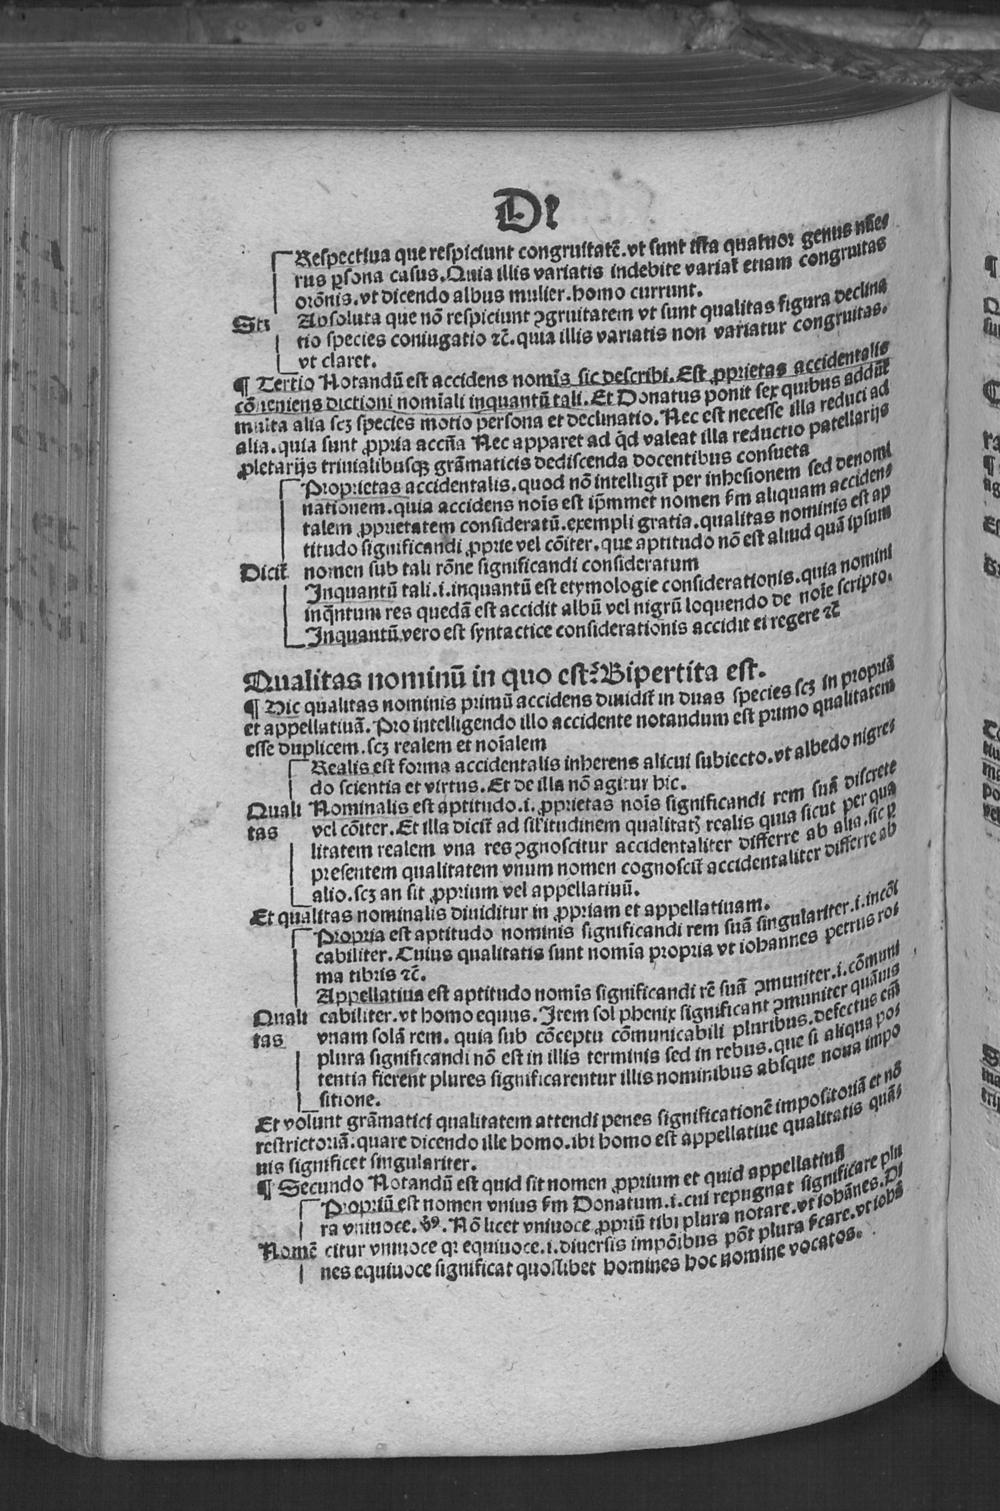 De
Respectiua que respiciunt congruitatē. vt sunt ista quatuor genus nūe⸗
rus ꝑsona casus. Quia illis variatis indebite variat̄ etiam congruitas
orōnis. vt dicendo albus mulier. homo currunt.
Absoluta que nō respiciunt ꝯgruitatem vt sunt qualitas figura declina
Stꝫ
tio species coniugatio ⁊c̄. quia illis variatis non variatur congruitas.
vt claret.
¶ Tertio Notandū est accidens nomīs sic describi. Est ꝓprietas accidentalis
cōueniens dictioni nomīali inquantū tali. Et Donatus ponit sex quibus addūt̄
multa alia scꝫ species motio persona et declinatio. Nec est necesse illa reduci ad
alia. quia sunt ꝓpria accña Nec apparet ad q̄d valeat illa reductio patellarijs
ꝓletarijs triuialibusqꝫ grāmaticis dediscenda docentibus consueta
Proprietas accidentalis. quod nō intelligit̄ per inhesionem sed denomi
nationem. quia accidens noīs est ip̄mmet nomen ẜm aliquam acciden⸗
talem ꝓprietatem consideratū. exempli gratia. qualitas nominis est ap
titudo significandi ꝓprie vel cōiter. que aptitudo nō est aliud quā ipsum
Dicit̄ nomen sub tali rōne significandi consideratum
Inquantū tali. i. inquantū est etymologie considerationis. quia nomini
inq̄ntum res quedā est accidit albū vel nigrū loquendo de noīe scripto.
Inquantū vero est syntactice considerationis accidit ei regere ⁊c̄
Qualitas nominū in quo est? Bipertita est.
¶ Hic qualitas nominis primū accidens diuidit̄ in duas species scꝫ in propriā
et appellatiuā. Pro intelligendo illo accidente notandum est primo qualitatem
esse duplicem. scꝫ realem et noīalem
Realis est forma accidentalis inherens alicui subiecto. vt albedo nigre⸗
do scientia et virtus. Et de illa nō agitur hic.
Quali Nominalis est aptitudo. i. ꝓprietas noīs significandi rem suā discrete
tas vel cōiter. Et illa dicit̄ ad sil̄itudinem qualitatꝭ realis quia sicut per qua
litatem realem vna res ꝯgnoscitur accidentaliter differre ab alia. sic ꝑ
presentem qualitatem vnum nomen cognoscit̄ accidentaliter differre ab
alio. scꝫ an sit ꝓprium vel appellatiuū.
Et qualitas nominalis diuiditur in ꝓpriam et appellatiuam.
Propria est aptitudo nominis significandi rem suā singulariter. i. incōi
cabiliter. Cuius qualitatis sunt nomīa propria vt iohannes petrus ro⸗
ma tibris ⁊c̄.
Appellatiua est aptitudo nomīs significandi rē suā ꝯmuniter. i. cōmuni
Quali cabiliter. vt homo equus. Item sol phenix significant ꝯmuniter quāuis
tas vnam solā rem. quia sub cōceptu cōmunicabili pluribus. defectus em̄
plura significandi nō est in illis terminis sed in rebus. que si aliqua po⸗
tentia fierent plures significarentur illis nominibus absque noua impo
sitione.
Et volunt grāmatici qualitatem attendi penes significationē impositoriā et nō
restrictoriā. quare dicendo ille homo. ibi homo est appellatiue qualitatis quā⸗
uis significet singulariter.
¶ Secundo Notandū est quid sit nomen ꝓprium et quid appellatiuū
Propriū est nomen vnius ẜm Donatum. i. cui repugnat significare plu
ra vniuoce. Nō licet vniuoce ꝓpriū tibi plura notare. vt iohānes. Di
Nomē citur vniuoce qꝛ equiuoce. i. diuersis impōibus pōt plura ẜcare. vt iohā
nes equiuoce significat quoslibet homines hoc nomine vocatos.